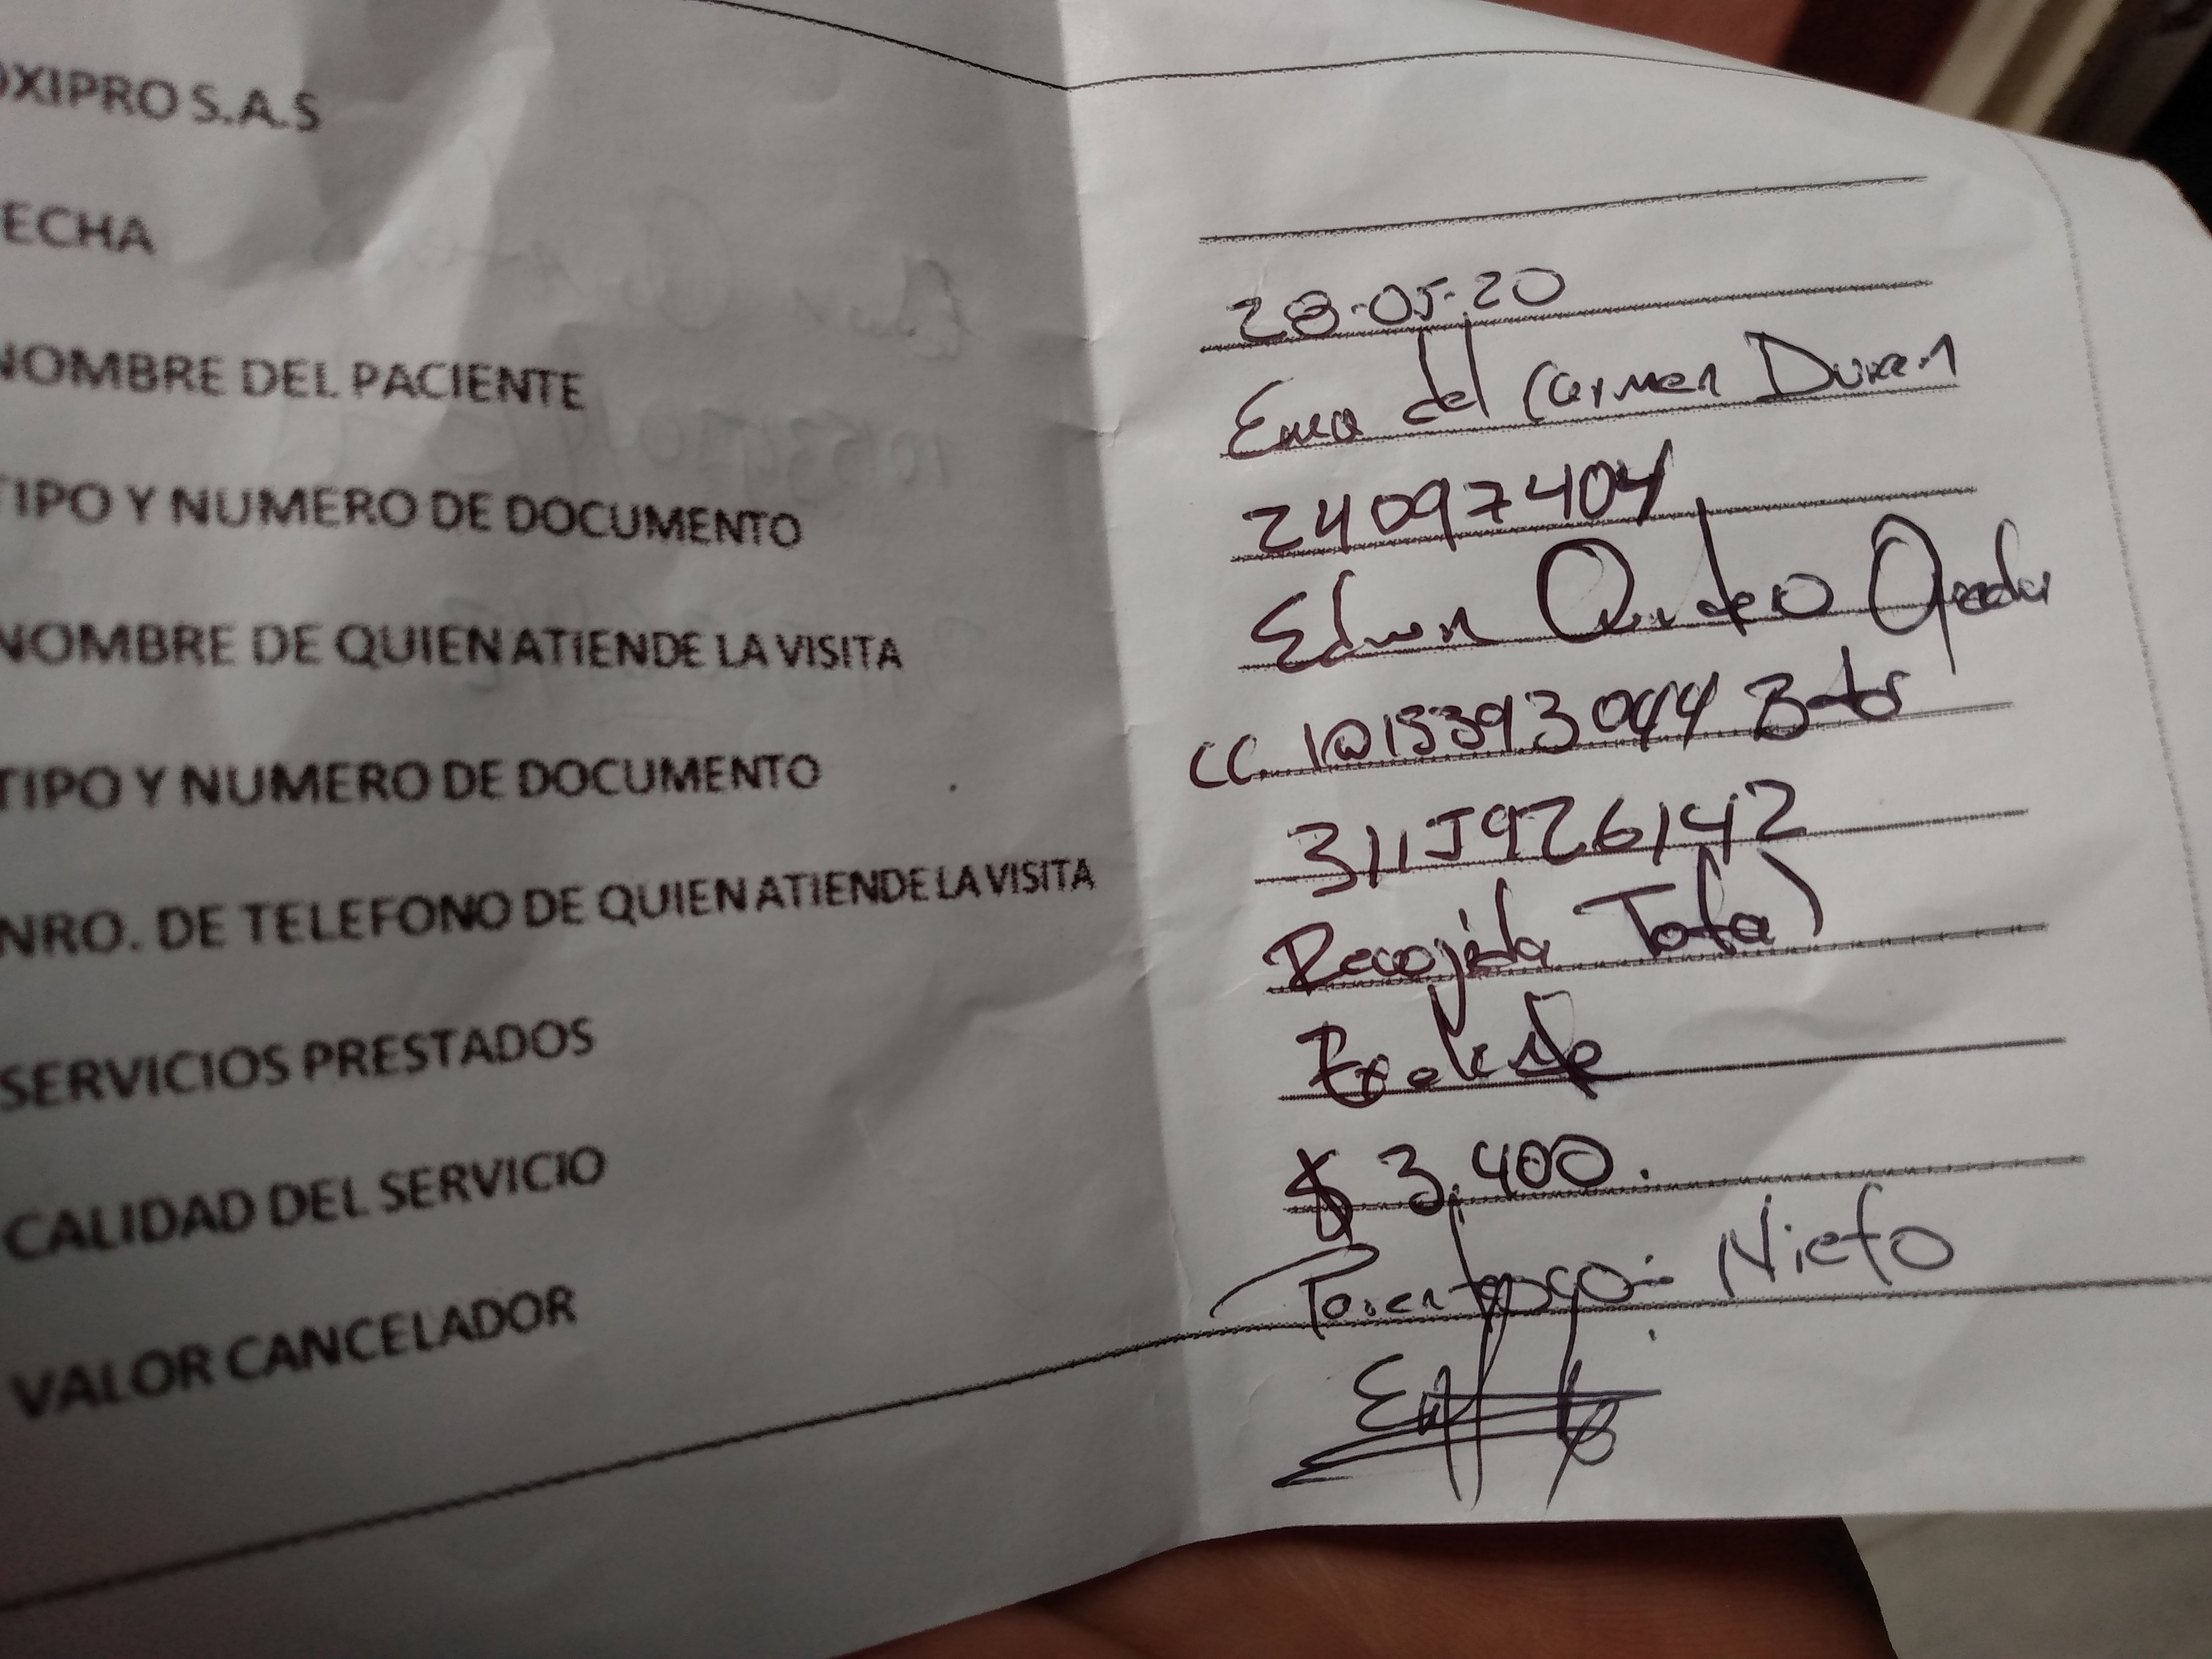 OXIPRO S.A.S
FECHA 28-05-20
NOMBRE DEL PACIENTE Ema del Carmen Duran
TIPO Y NUMERO DE DOCUMENTO 24097404
NOMBRE DE QUIEN ATIENDE LA VISITA Edwin Quintero
TIPO Y NUMERO DE DOCUMENTO CC. 1015393044
NRO. DE TELEFONO DE QUIEN ATIENDE LA VISITA 3115926142
SERVICIOS PRESTADOS Recojida Total
CALIDAD DEL SERVICIO
VALOR CANCELADOR $ 3.400.
Parentesco: Nieto